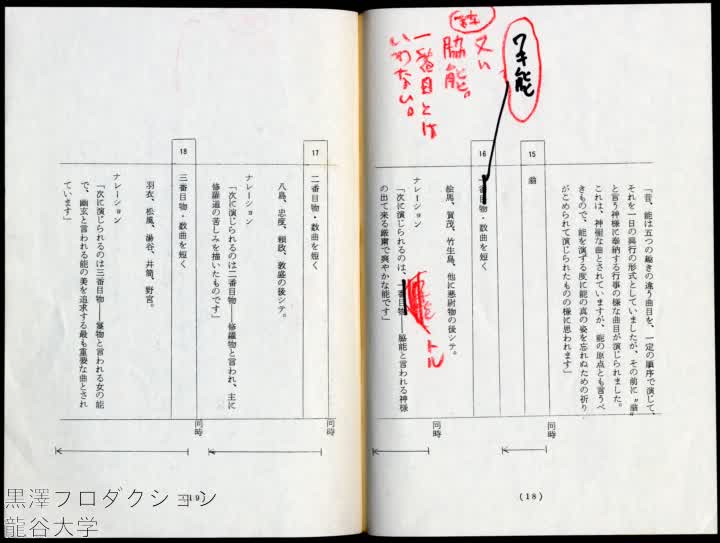 ワキ能
又ハ
脇能。
一番目とは
いわない。
「昔、能は五つの趣きの違う曲目を、一定の順序で演じて、
それを一日の興行の形式としていましたが、その前に〝翁〟
と言う神様に奉納する行事の様な曲目が演じられました。
これは、神聖な曲とされていますが、能の原点とも言うべ
きもので、能を演ずる度に能の真の姿を忘れぬための祈り
がこめられて演じられたものの様に思われます」
15
翁
同時
16
一番目物・数曲を短く
絵馬、賀茂、竹生島、他に悪尉物の後シテ。
ナレーション
「次に演じられるのは、一番目物――脇能と言われる神様
の出て来る厳粛で爽やかな能です」
トル
同時
(18)
17
二番目物・数曲を短く
八島、忠度、頼政、敦盛の後シテ。
ナレーション
「次に演じられるのは二番目物――修羅物と言われ、主に
修羅道の苦しみを描いたものです」
同時
18
三番目物・数曲を短く
羽衣、松風、湯谷、井筒、野宮。
ナレーション
「次に演じられるのは三番目物――鬘物と言われる女の能
で、幽玄と言われる能の美を追求する最も重要な曲とされ
ています」
同時
(19)
黒澤プロダクション
龍谷大学